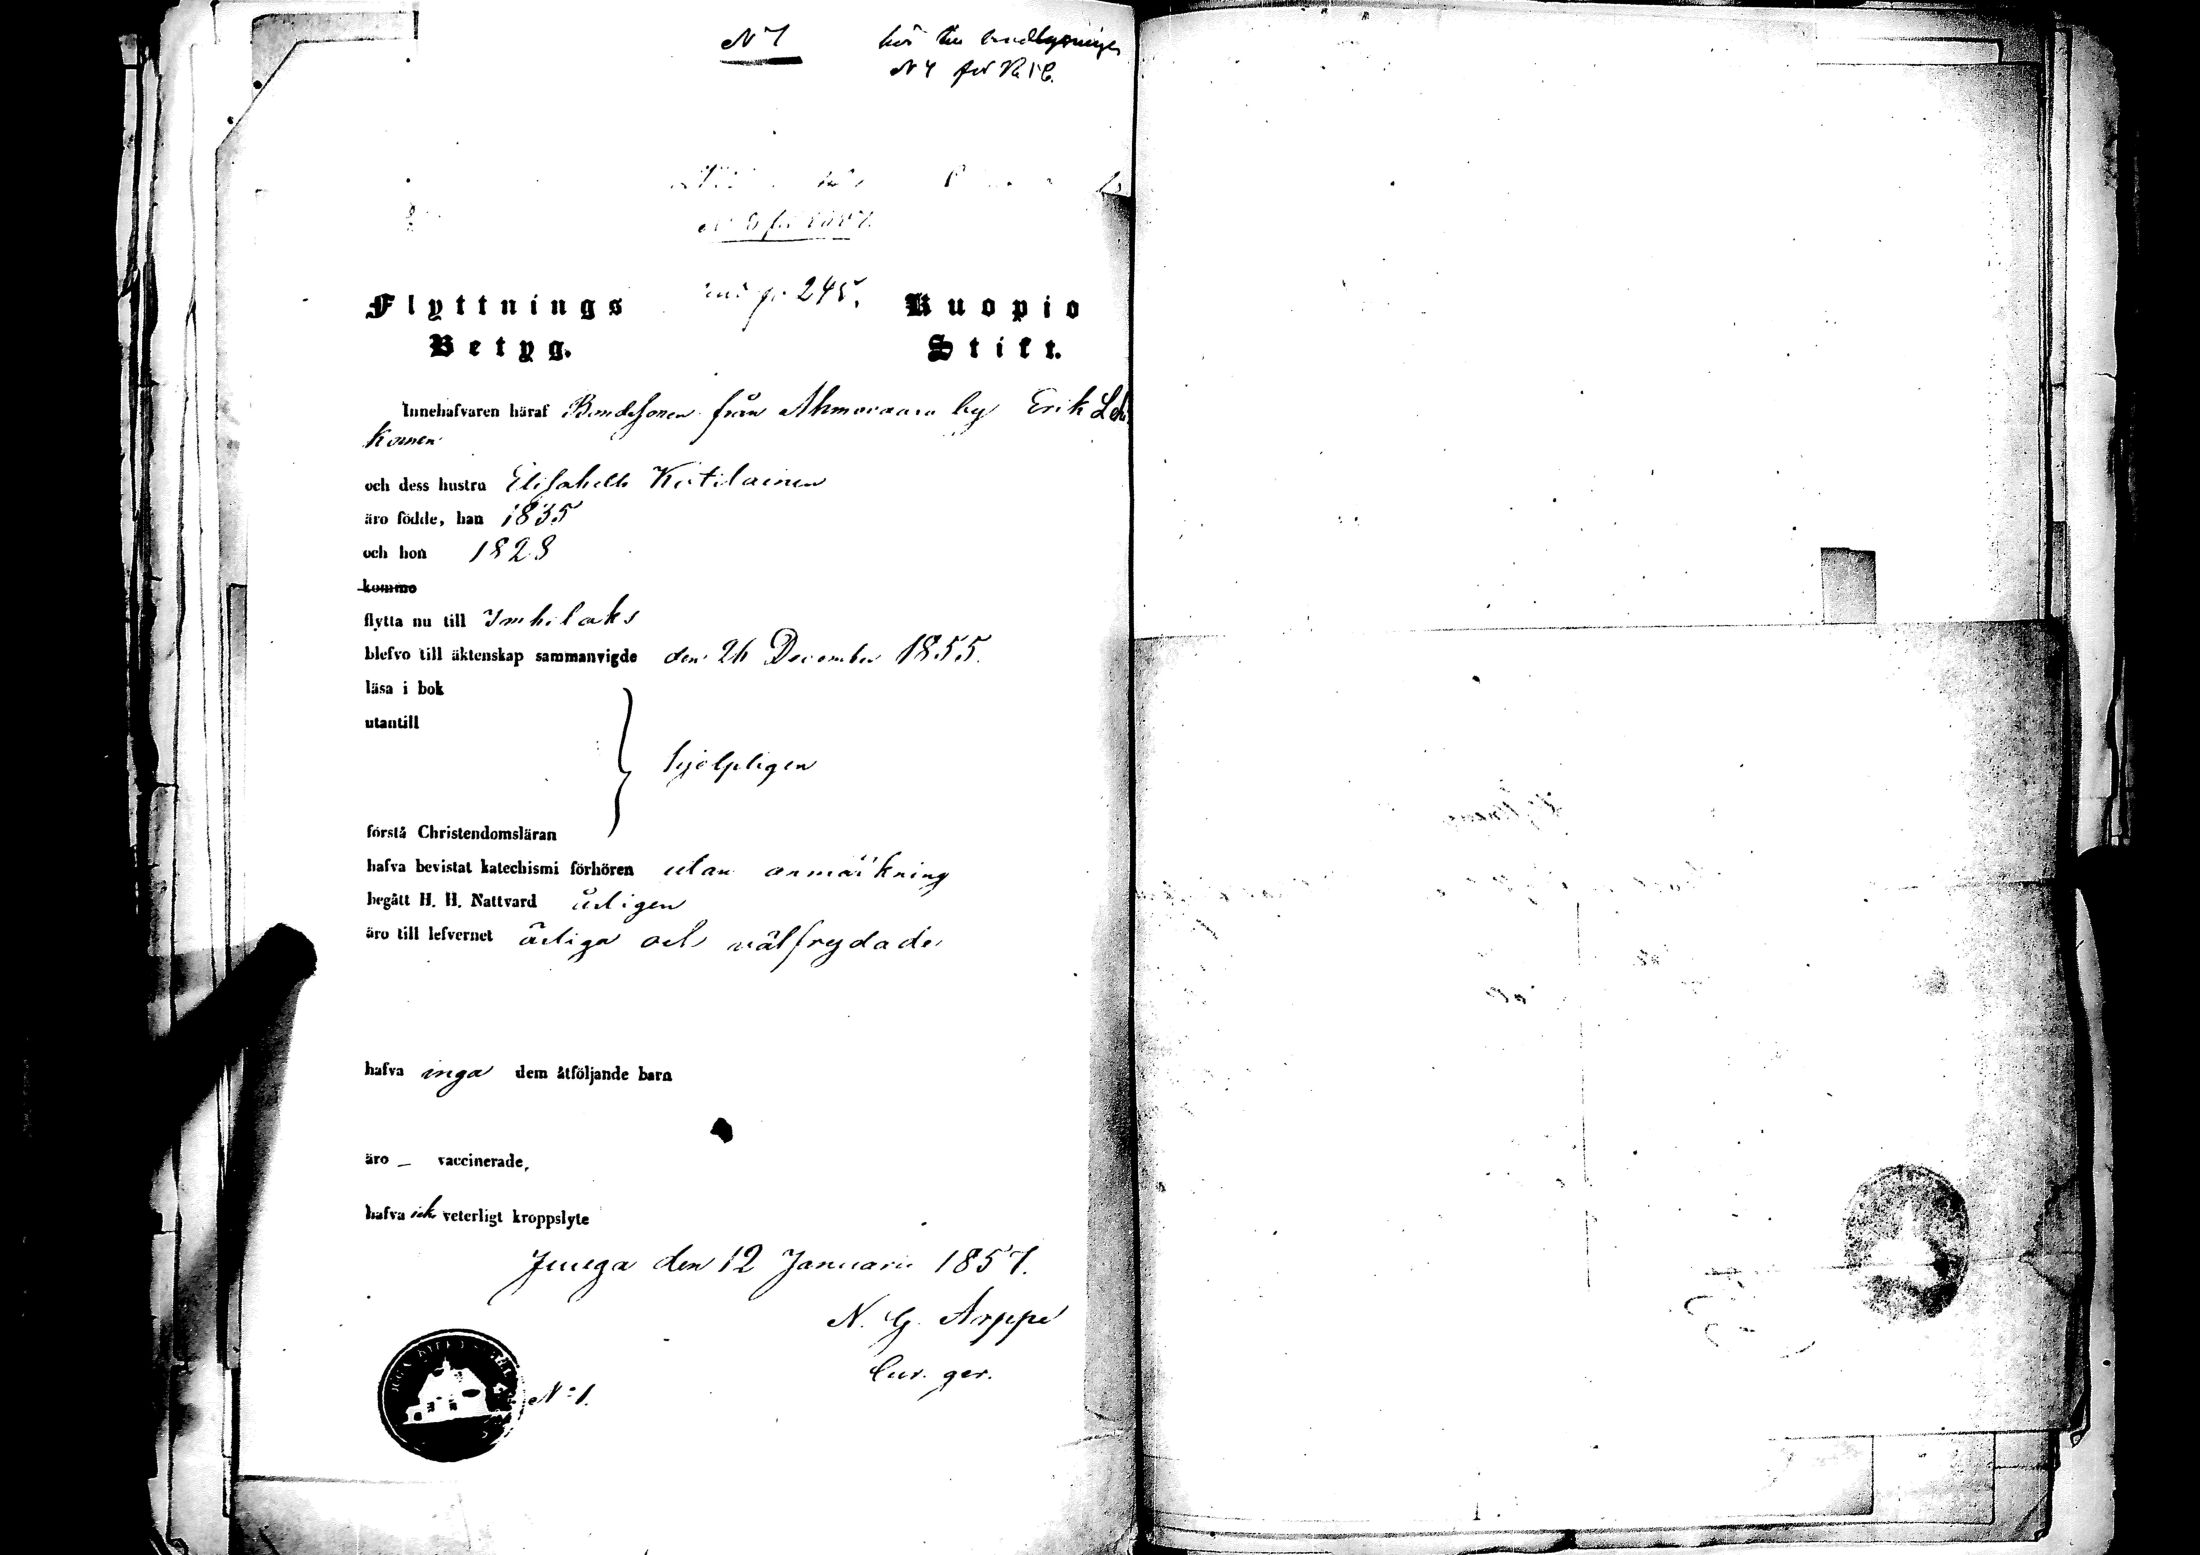 N 7
hör till
N 4 för
N 6 för 1857.
245.
Flyttnings Kuopio
Betyg. Stift.
Innehafvaren häraf Bondesonen från Ahmovaara by Erik
konen
och dess hustru Elisabeth Kutilainen
äro födde, han 1835
och hon 1828
komma
flytta nu till Imbilaks
blefvo till äktenskap sammanvigde den 26 December 1855.
läsa i bok
utantill
hjelpligen
förstå Christendomsläran
hafva bevistat katechismi förhören utan anmärkning
begått H. H. Nattvard årligen
äro till lefvernet ärliga och välfrejdade
hafva inga dem åtföljande barn
äro _ vaccinerade,
hafva ick veterligt kroppslyte
Juuga den 12 Januarii 1857.
N. G. Arppe
Cur. ger.
N:o 1.